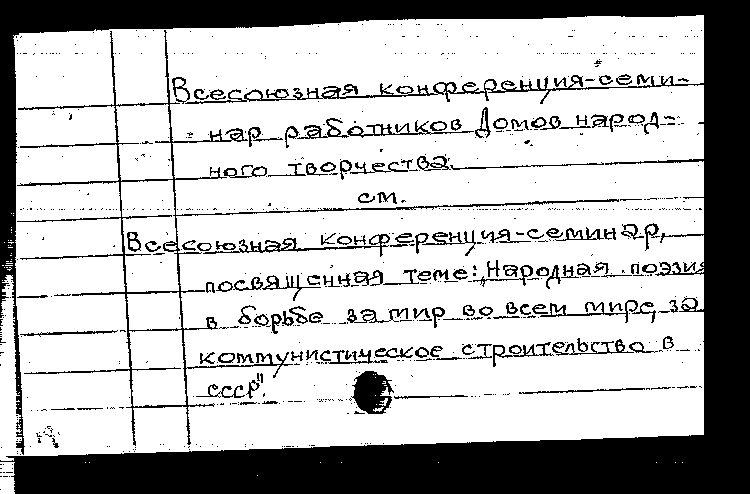 Всесоюзная конференция-семи-
нар работников Домов народ-
ного творчества.
см.
Всесоюзная конференция-семинар,
посвященная теме: „Народная поэзия
в борьбе за мир во всем мире, за
коммунистическое строительство в
СССР".